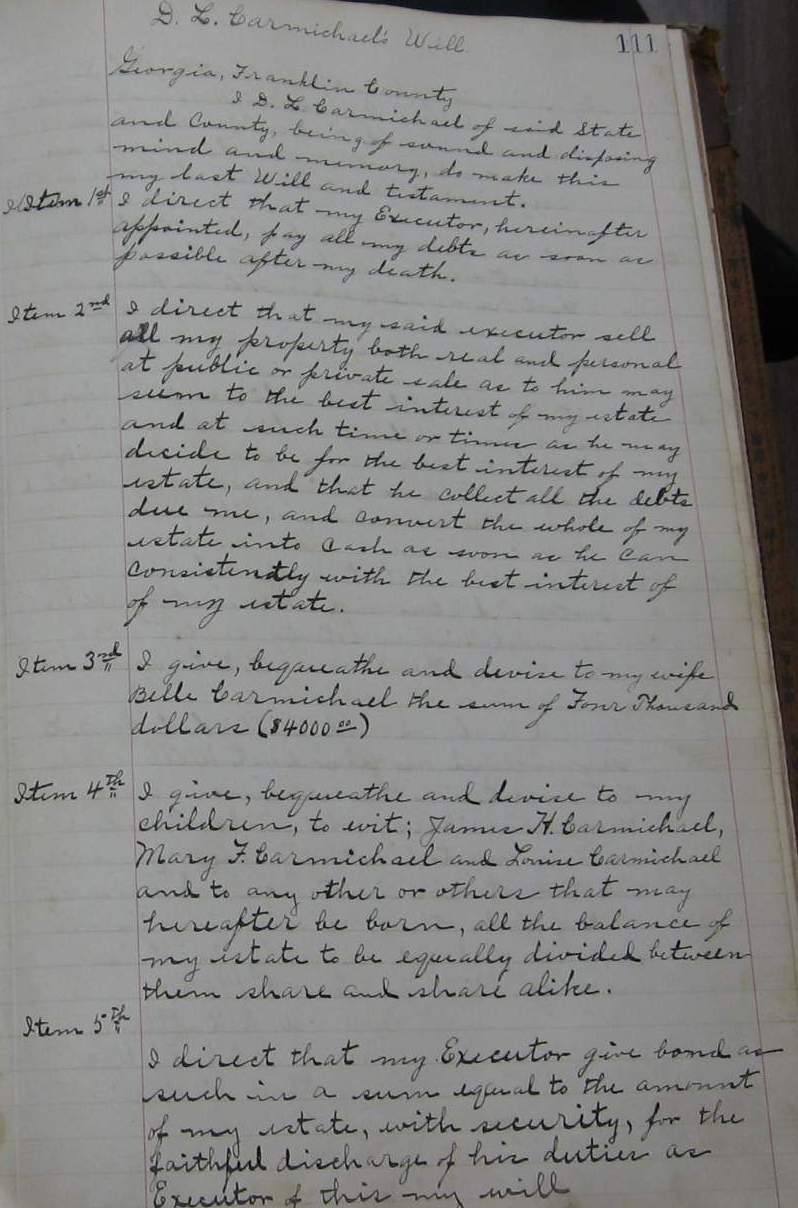 D. L. Carmichael's Will.
111
Georgia, Franklin County
I D. L. Carmichael of said State
and County, being of sound and disposing
mind and memory, do make this
my last Will and testament.
Item 1st I direct that my Executor, hereinafter
appointed, pay all my debts as soon as
possible after my death.
Item 2nd I direct that my said executor sell
all my property both real and personal
at public or private sale as to him may
seem to the best interest of my estate
and at such time or times as he may
decide to be for the best interest of my
estate, and that he collect all the debts
due me, and convert the whole of my
estate into cash as soon as he can
consistently with the best interest of
of my estate.
Item 3rd I give, bequeathe and devise to my wife
Belle Carmichael the sum of Four Thousand
dollars ($4000.00)
Item 4th I give, bequeathe and devise to my
children, to wit; James H. Carmichael,
Mary F. Carmichael and Louise Carmichael
and to any other or others that may
hereafter be born, all the balance of
my estate to be equally divided between
them share and share alike.
Item 5th
I direct that my Executor give bond as
such in a sum equal to the amount
of my estate, with security, for the
faithful discharge of his duties as
Executor of this my will